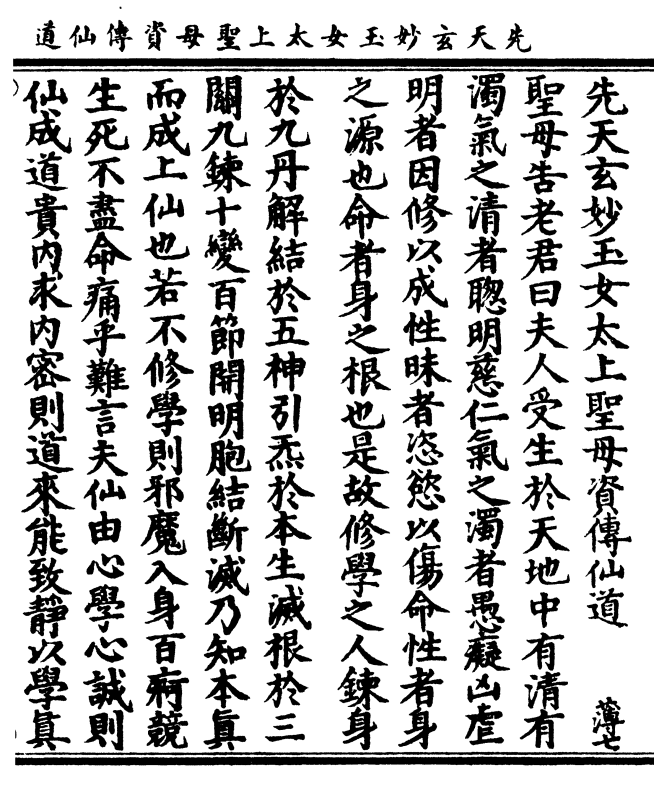 先天玄妙玉女太上聖母資傳仙道
先天玄妙玉女太上聖母資傳仙道　薄七
聖母告老君曰夫人受生於天地中有清有
濁氣之清者聦明慈仁氣之濁者愚癡凶虐
明者因修以成性昧者恣慾以傷命性者身
之源也命者身之根也是故修學之人鍊身
於九丹解結於五神引炁於本生滅根於三
關九鍊十變百節開明胞結斷滅乃知本眞
而成上仙也若不修學則邪魔入身百痾競
生死不盡命痛乎難言夫仙由心學心誠則
仙成道貴內求內密則道來能致靜以學眞